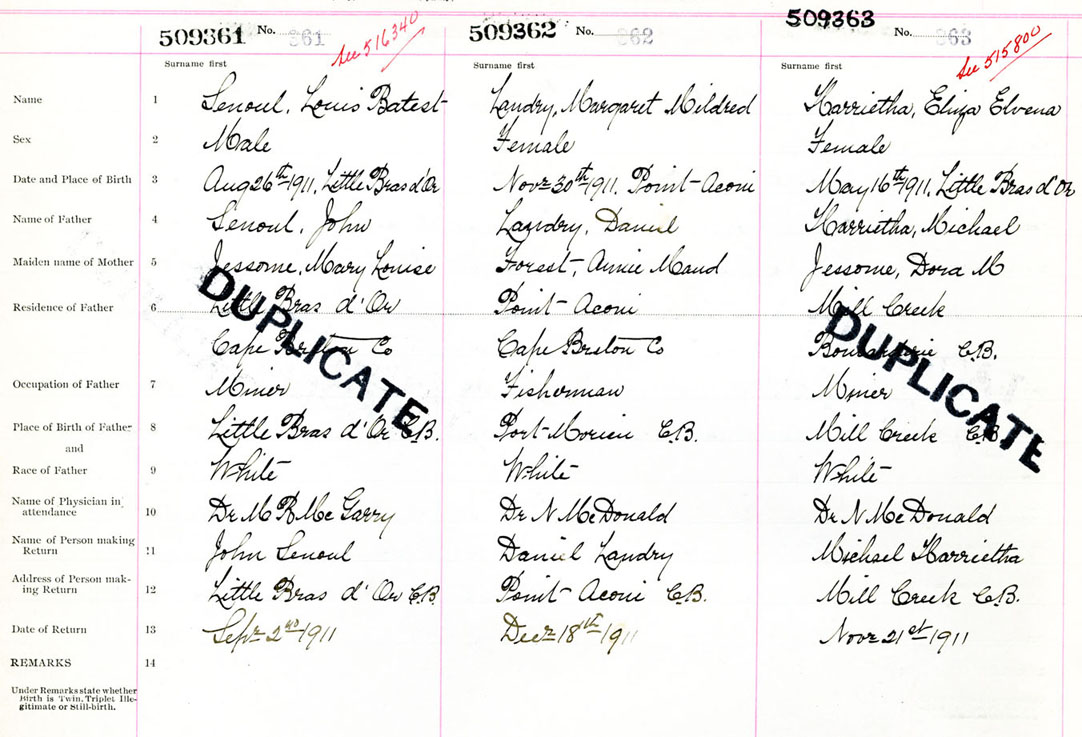 509361 No. 361 See 516340
509362 No. 362
509363 No. 363 See 515800
Surname first Surname first Surname first
Name 1 Senoul, Louis Batest Landry, Margaret Mildred Harrietha, Eliza Elvena
Sex 2 Male Female Female
Date and Place of Birth 3 Aug 26th 1911, Little Bras d'Or Novr 30th 1911, Point Aconi May 16th 1911, Little Bras d'Or
Name of Father 4 Senoul, John Landry, Daniel Harrietha, Michael
Maiden name of Mother 5 Jessome, Mary Louise Forest, Annie Maud Jessome, Dora M
Residence of Father 6 Little Bras d'Or Point Aconi Mill Creek
Cape Breton Co Cape Breton Co Boularderie C.B.
DUPLICATE DUPLICATE
Occupation of Father 7 Miner Fisherman Miner
Place of Birth of Father 8 Little Bras d'Or C.B. Port Morien C.B. Mill Creek C.B.
and
Race of Father 9 White White White
Name of Physician in
attendance 10 Dr M R Mc Garry Dr N McDonald Dr N McDonald
Name of Person making
Return 11 John Senoul Daniel Landry Michael Harrietha
Address of Person mak-
ing Return 12 Little Bras d'Or C.B. Point Aconi C.B. Mill Creek C.B.
Date of Return 13 Sepr 2nd 1911 Decr 18th 1911 Novr 21st 1911
REMARKS 14
Under Remarks state whether
Birth is Twin, Triplet Ille-
gitimate or Still-birth.